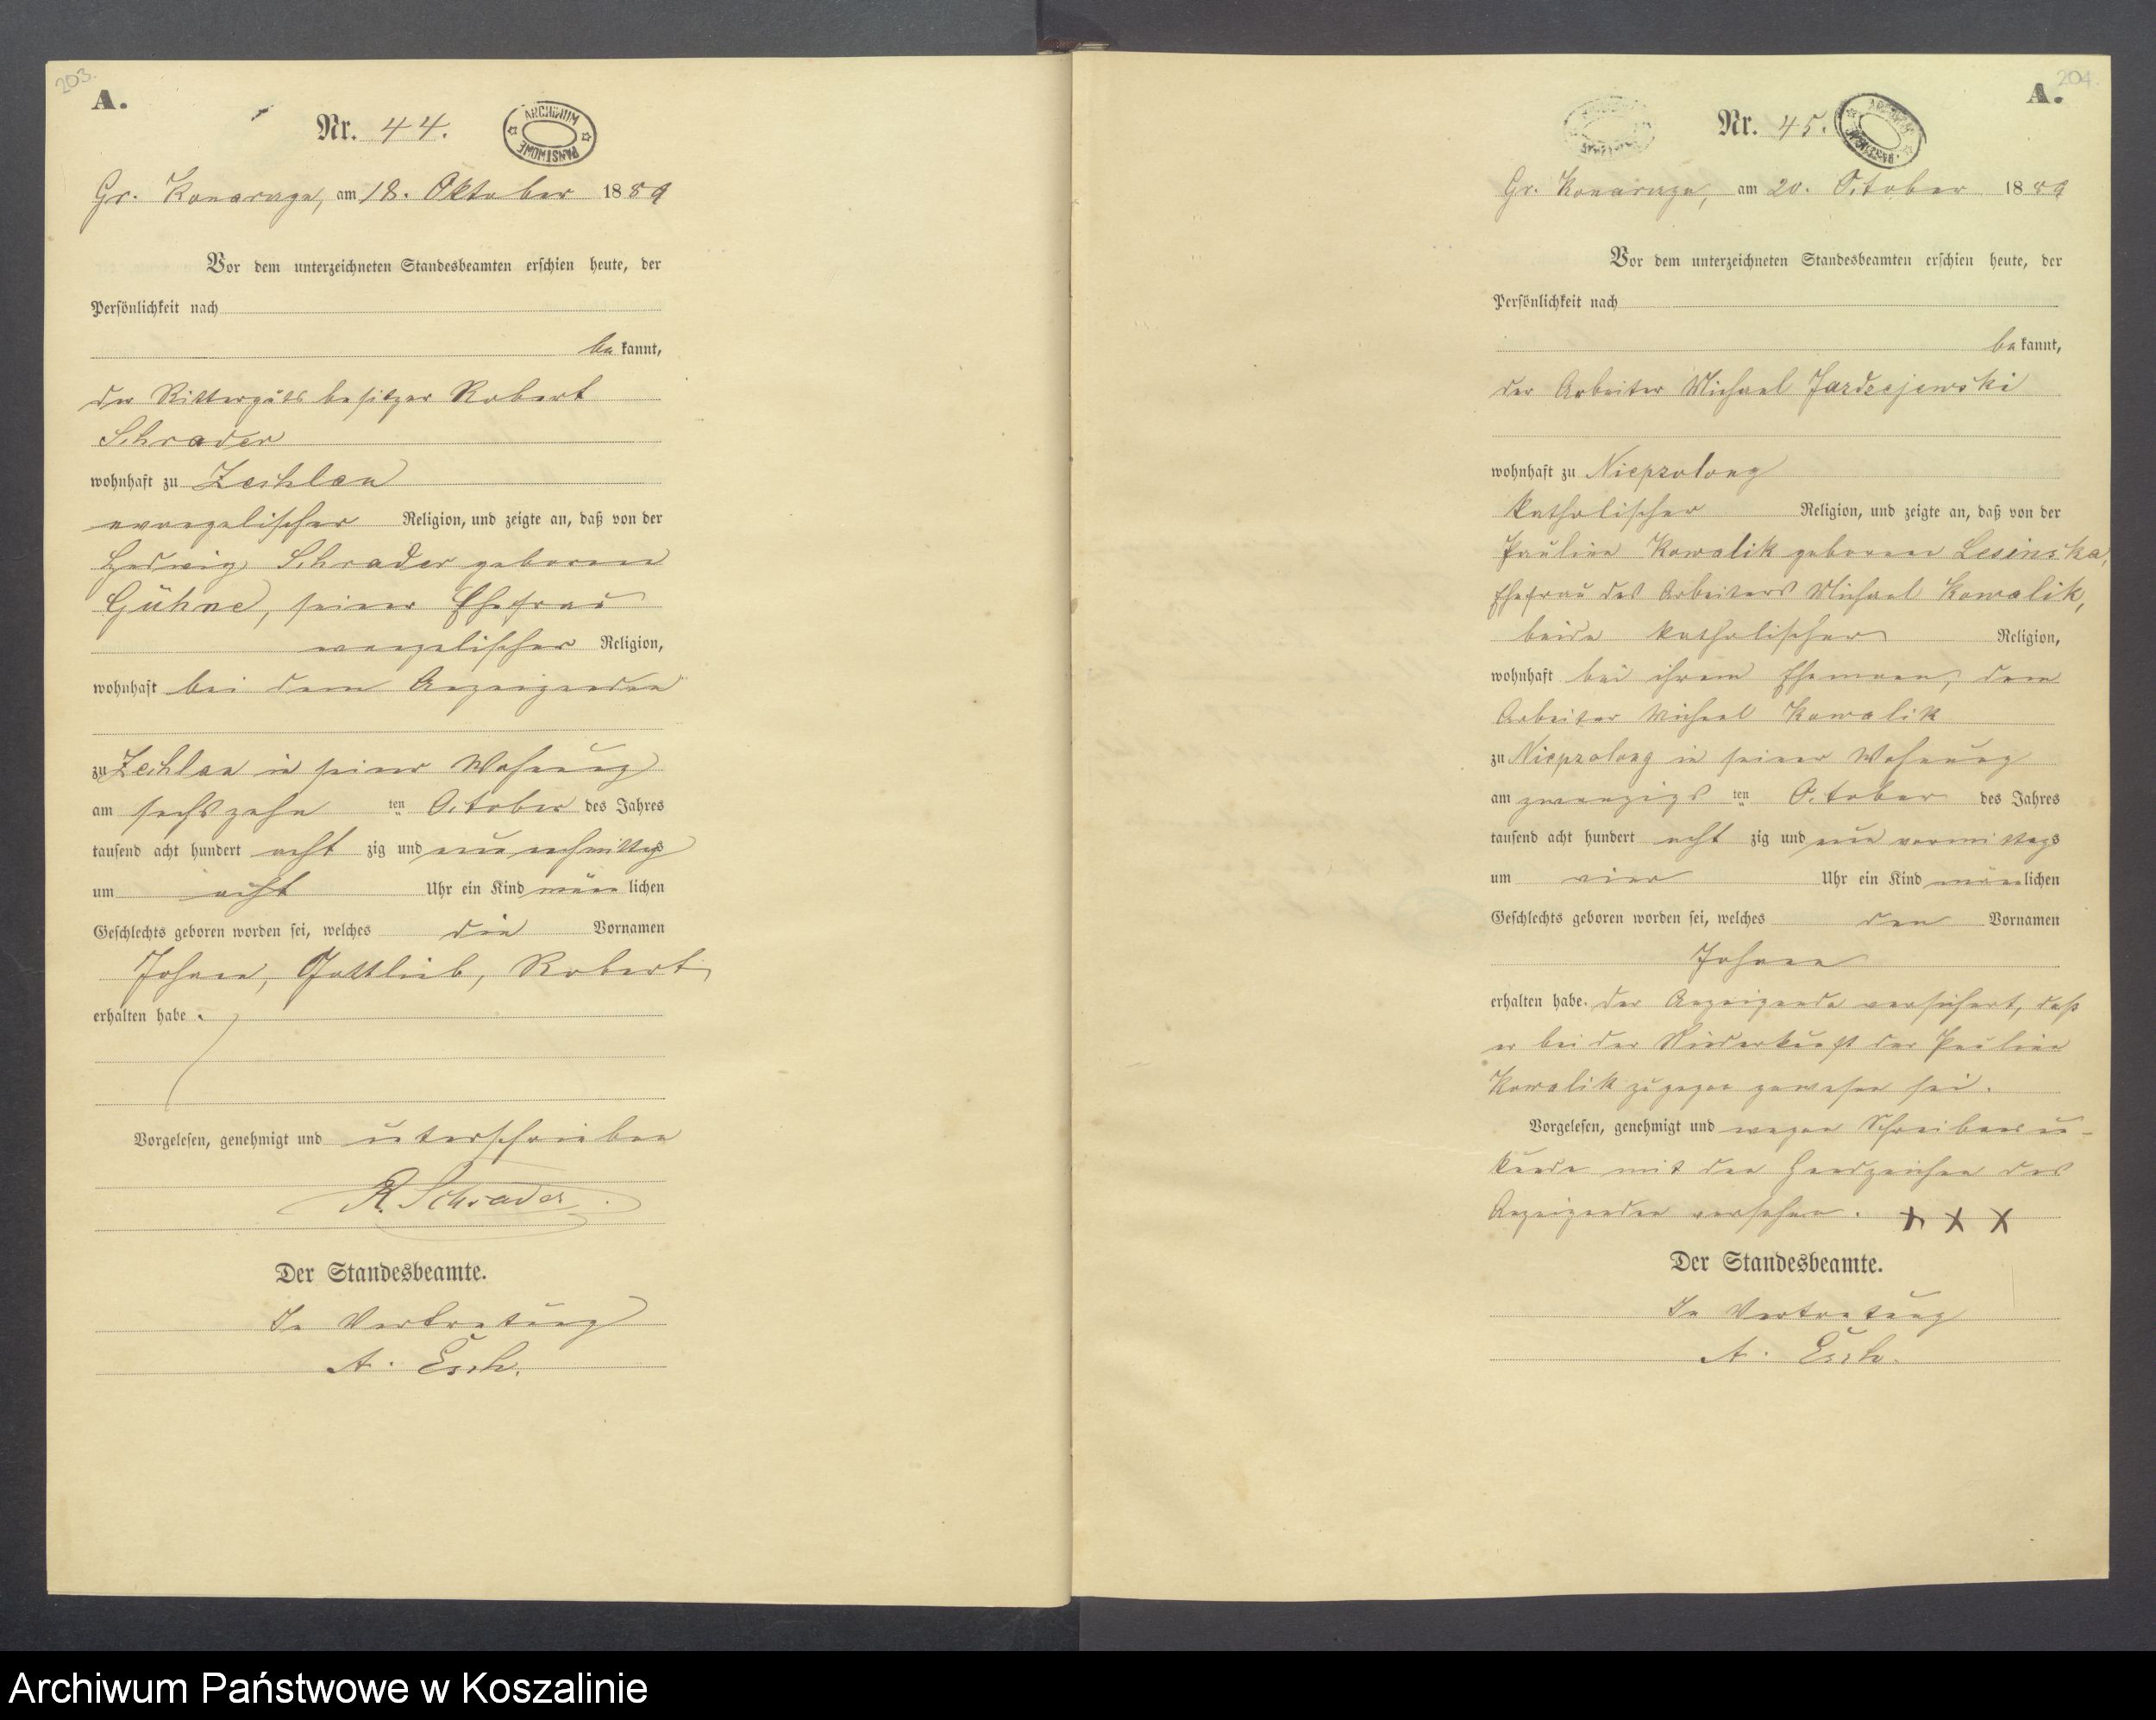 203.
A.
Nr. 44.
ARCHIWUM PAŃSTWOWE
Gr. Konarczyn, am 18. Oktober 1889
Vor dem unterzeichneten Standesbeamten erschien heute, der
Persönlichkeit nach
be kannt,
der Rittergutsbesitzer Robert
Schrader
wohnhaft zu Zechlau
evangelischer Religion, und zeigte an, daß von der
Hedwig Schrader geborene
Gühne, seiner Ehefrau
evangelischer Religion,
wohnhaft bei dem Anzeigenden
zu Zechlau in seiner Wohnung
am sechszehn ten October des Jahres
tausend acht hundert acht zig und neun nachmittags
um acht Uhr ein Kind männ lichen
Geschlechts geboren worden sei, welches die Vornamen
Johann, Gottlieb, Robert
erhalten habe.
Vorgelesen, genehmigt und unterschrieben
R. Schrader.
Der Standesbeamte.
In Vertretung
A. Esch.
204.
A.
Nr. 45.
ARCHIWUM PAŃSTWOWE
Gr. Konarczyn, am 20. October 1889
Vor dem unterzeichneten Standesbeamten erschien heute, der
Persönlichkeit nach
be kannt,
der Arbeiter Michael Jardzejewski
wohnhaft zu Niepzolong
katholischer Religion, und zeigte an, daß von der
Pauline Kowalik geborene Lesinska,
Ehefrau des Arbeiters Michael Kowalik,
beide katholischer Religion,
wohnhaft bei ihrem Ehemann, dem
Arbeiter Michael Kowalik
zu Niepzolong in seiner Wohnung
am zwanzigs ten October des Jahres
tausend acht hundert acht zig und neun vormittags
um vier Uhr ein Kind männlichen
Geschlechts geboren worden sei, welches den Vornamen
Johann
erhalten habe. Der Anzeigende versichert, daß
er bei der Niederkunft der Pauline
Kowalik zugegen gewesen sei.
Vorgelesen, genehmigt und wegen Schreibensun-
kunde mit den Handzeichen des
Anzeigenden versehen. + + +
Der Standesbeamte.
In Vertretung
A. Esch.
Archiwum Państwowe w Koszalinie